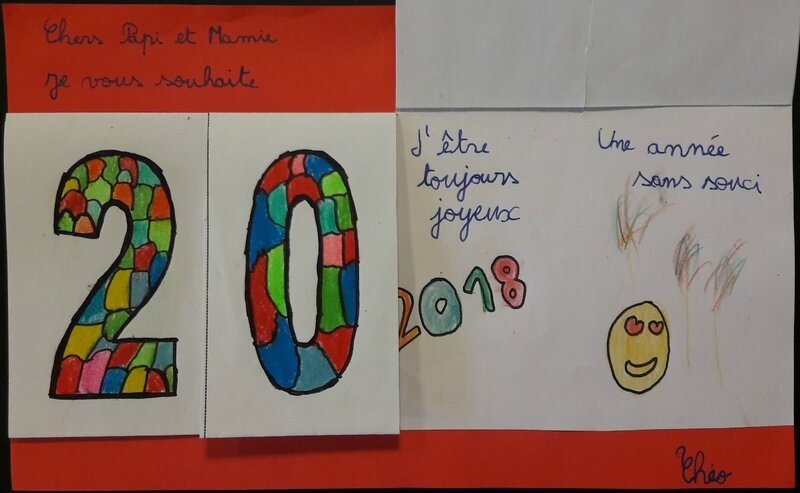 Chers Papi et Mamie
Je vous souhaite
20
J'être
toujours
joyeux
2018
Une année
sans souci
Théo